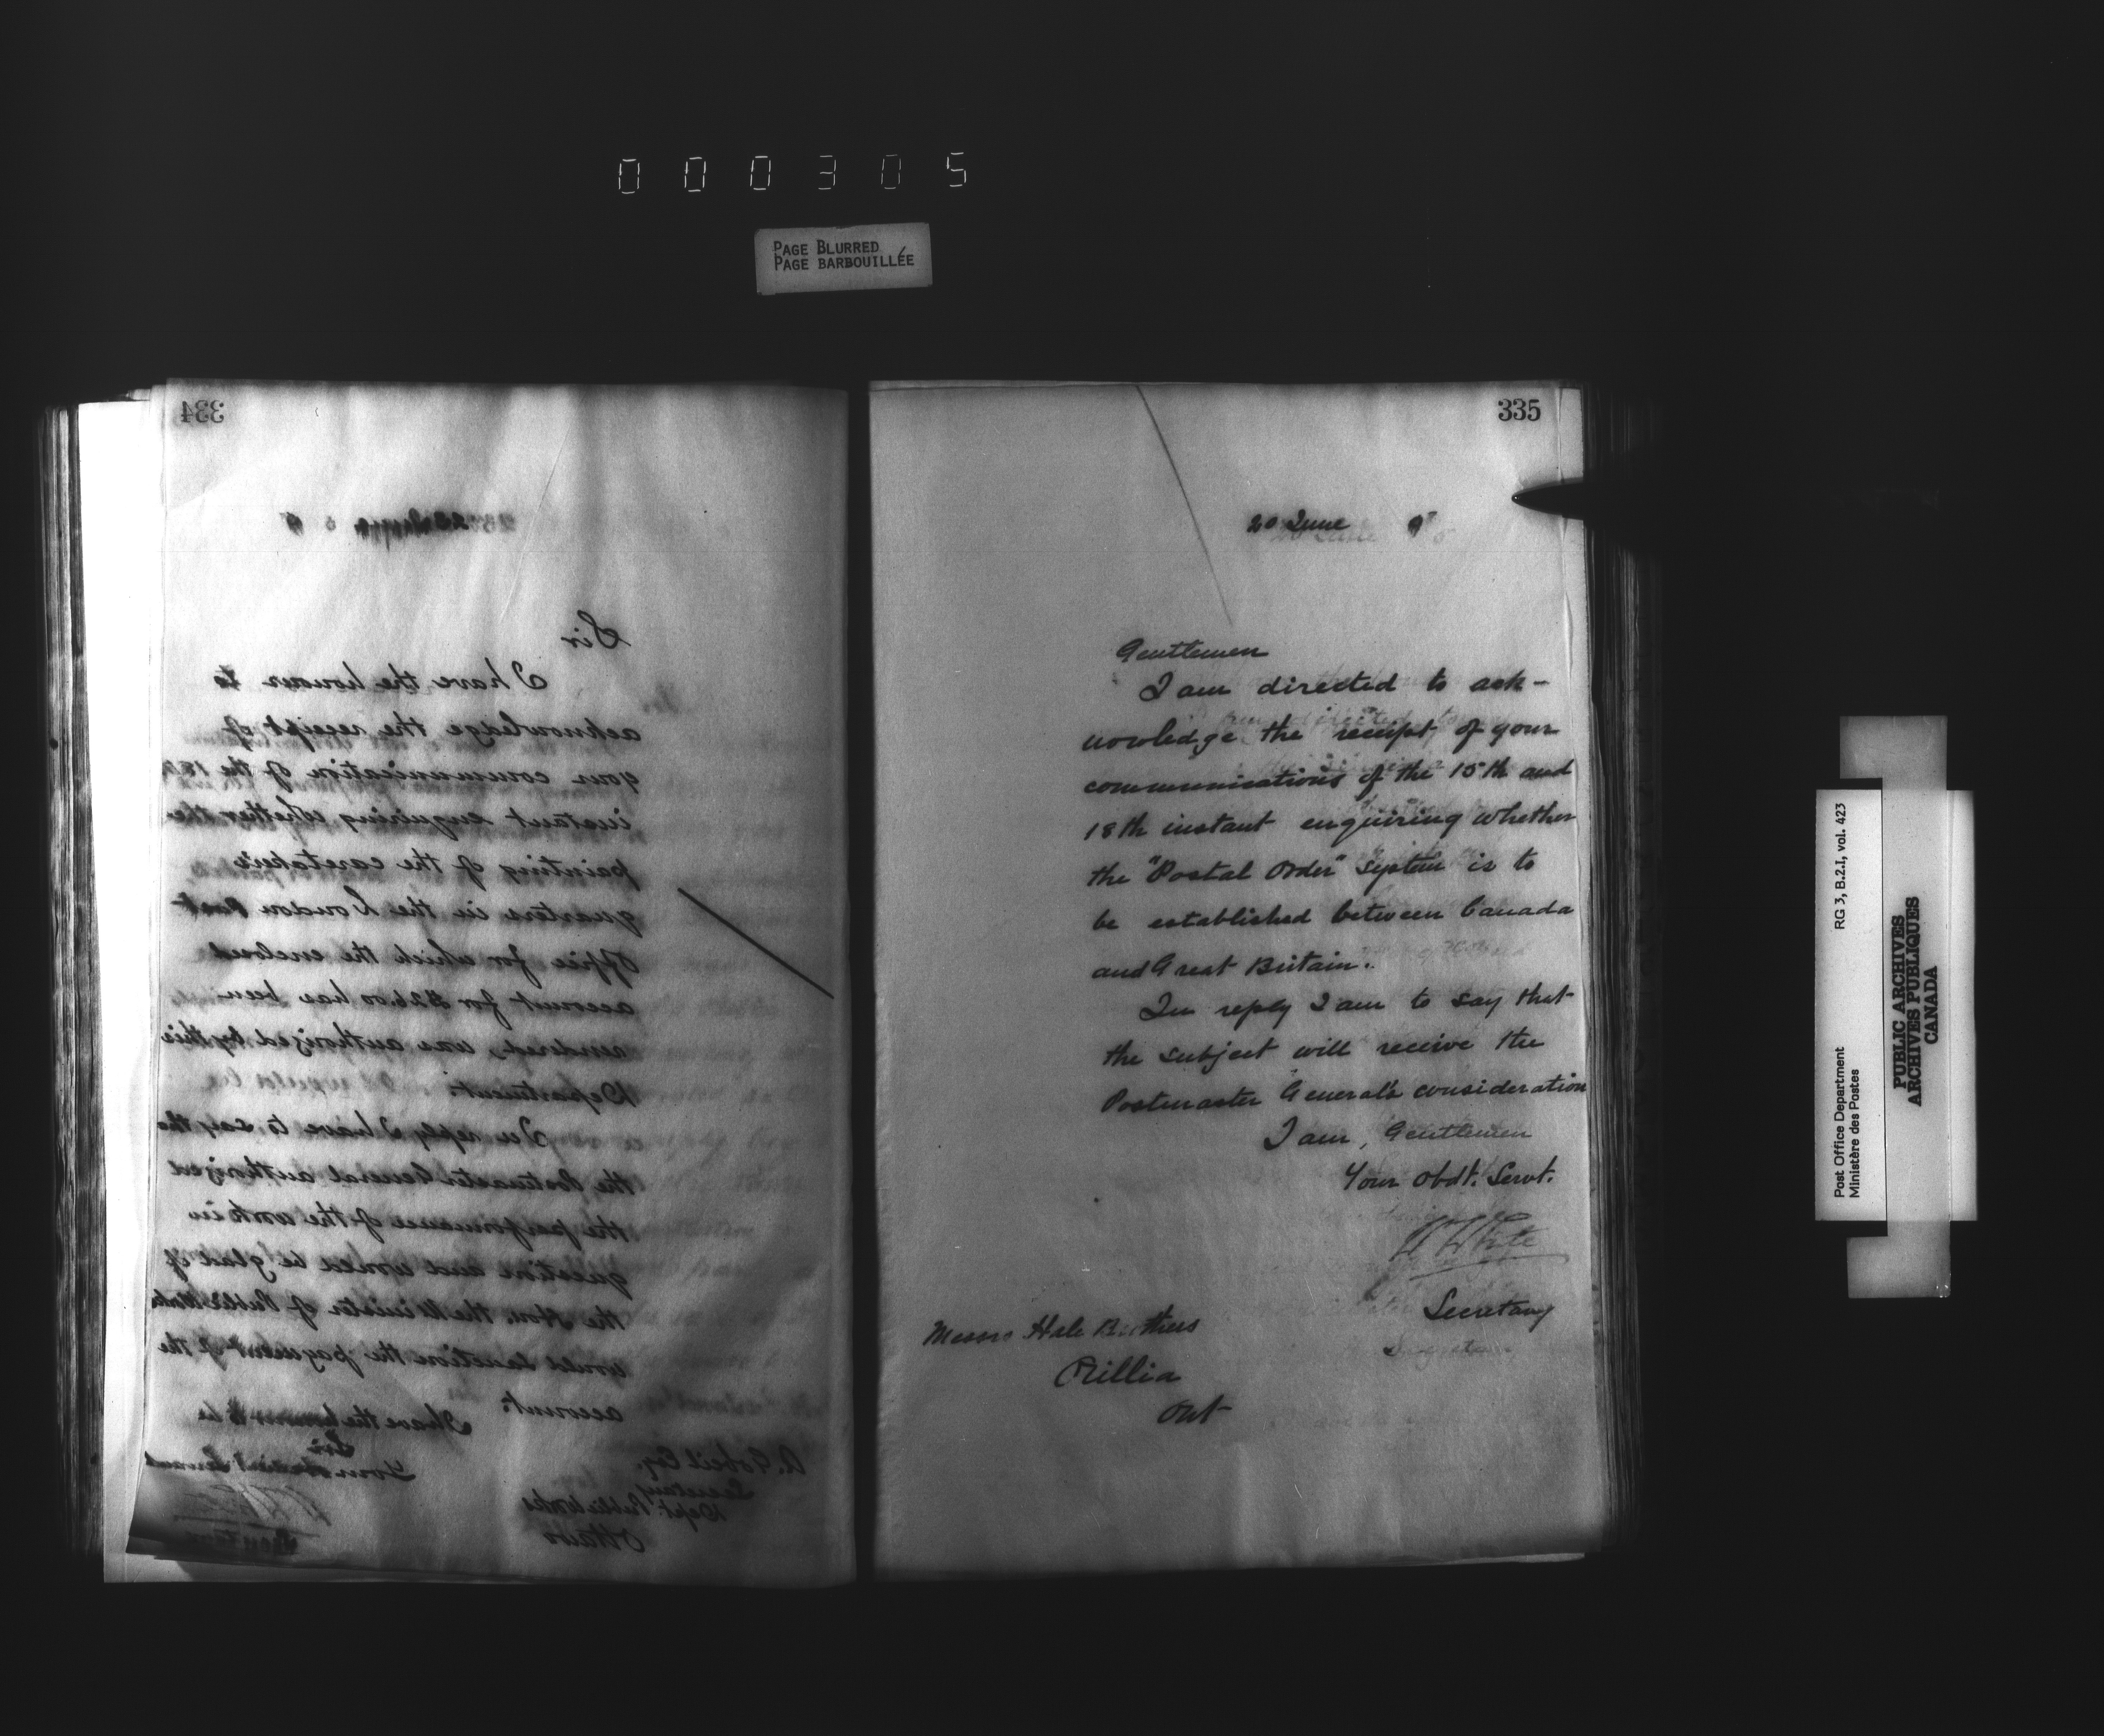 000305
PAGE BLURRED
PAGE BARBOUILLÉE
334
Sir
I have the honour to
acknowledge the receipt of
your communication of the 18th
instant enquiring whether the
painting of the caretaker's
quarters in the London Post
Office for which the enclosed
account for $26.00 has been
rendered, was authorized by this
Department.
In reply I have to say the
the Postmaster General authorized
the performance of the work in
question and would be glad if
the Hon. the Minister of Public Works
would sanction the payment of the
account.
I have the honour to be
Sir
Your obedient Servant
Secretary
A. Gobeil Esq.
Secretary
Dept. Public Works
Ottawa
335
20 June 95
Gentlemen
I am directed to ack-
nowledge the receipt of your
communications of the 15th and
18th instant enquiring whether
the "Postal Order" System is to
be established between Canada
and Great Britain.
In reply I am to say that
the subject will receive the
Postmaster General's consideration
I am, Gentlemen
Your Obdt. Servt.
W White
Secretary
Messrs Hale Brothers
Orillia
Ont
Post Office Department
Ministère des Postes
RG 3, B.2.I, vol. 423
PUBLIC ARCHIVES
ARCHIVES PUBLIQUES
CANADA